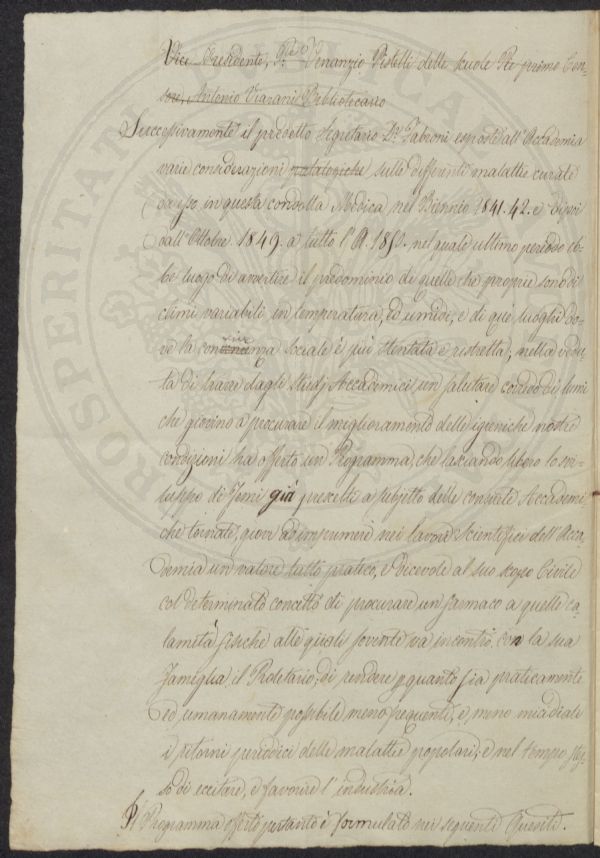 Vice Presidente, P.re Venanzio Pistelli delle Scuole Pie primo Cen-
sore, Antonio Viazani Bibliotecario
Successivamente il predetto Segretario D.r Fabroni espose all'Accademia
varie considerazioni patologiche sulle differenti malattie curate
da esso in questa condotta Medica nel Biennio 1841.42. e di poi
dall'Ottobre 1849. a tutto l'A. 1851. nel quale ultimo periodo eb-
be luogo di avvertire il predominio di quelle che proprie sono di
climi variabili in temperatura, ed umidi, e di que' luoghi do-
ve la convivenza sociale è più stentata e ristretta; nella vedu-
ta di trarre dagli studj Accademici un salutare corredo di lumi
che giovino a procurare il miglioramento delle igieniche nostre
condizioni ha offerto un Programma, che lasciando libero lo svi-
luppo di Temi già prescelti a subjetto delle consuete Accademi-
che tornate, giovi ad imprimere nei lavori Scientifici dell'Acca-
demia un valore tutto pratico, e dicevole al suo scopo Civile
col determinato concetto di procurare un farmaco a quelle ca-
lamità fisiche alle quali sovente va incontro con la sua
Famiglia il Proletario; di rendere p quanto sia praticamente
ed umanamente possibile meno frequenti, e meno micidiali
i ritorni periodici delle malattie popolari; e nel tempo stes-
so di eccitare, e favorire l'industria.
Il Programma offerto pertanto è formulato nei seguenti Quesiti.
PROSPERITATI